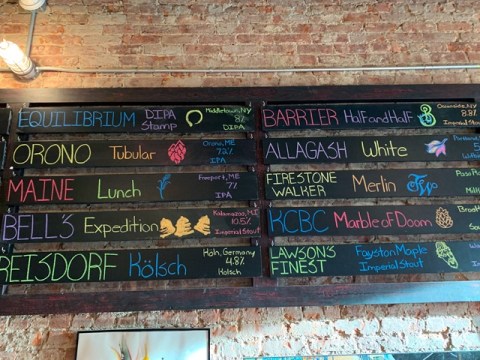 EQUILIBRIUM DIPA Stamp
Middletown, NY
8%
DIPA
ORONO Tubular
Orono, ME
7.2%
IPA
MAINE Lunch
Freeport, ME
7%
IPA
BELL'S Expedition
Kalamazoo, MI
10.5%
Imperial Stout
REISDORF Kölsch
Köln, Germany
4.8%
Kolsch
BARRIER Half and Half
Oceanside, NY
8.8%
Imperial Stout
ALLAGASH White
FIRESTONE
WALKER Merlin
Paso
KCBC Marble of Doom
LAWSONS
FINEST
Fayston Maple
Imperial Stout